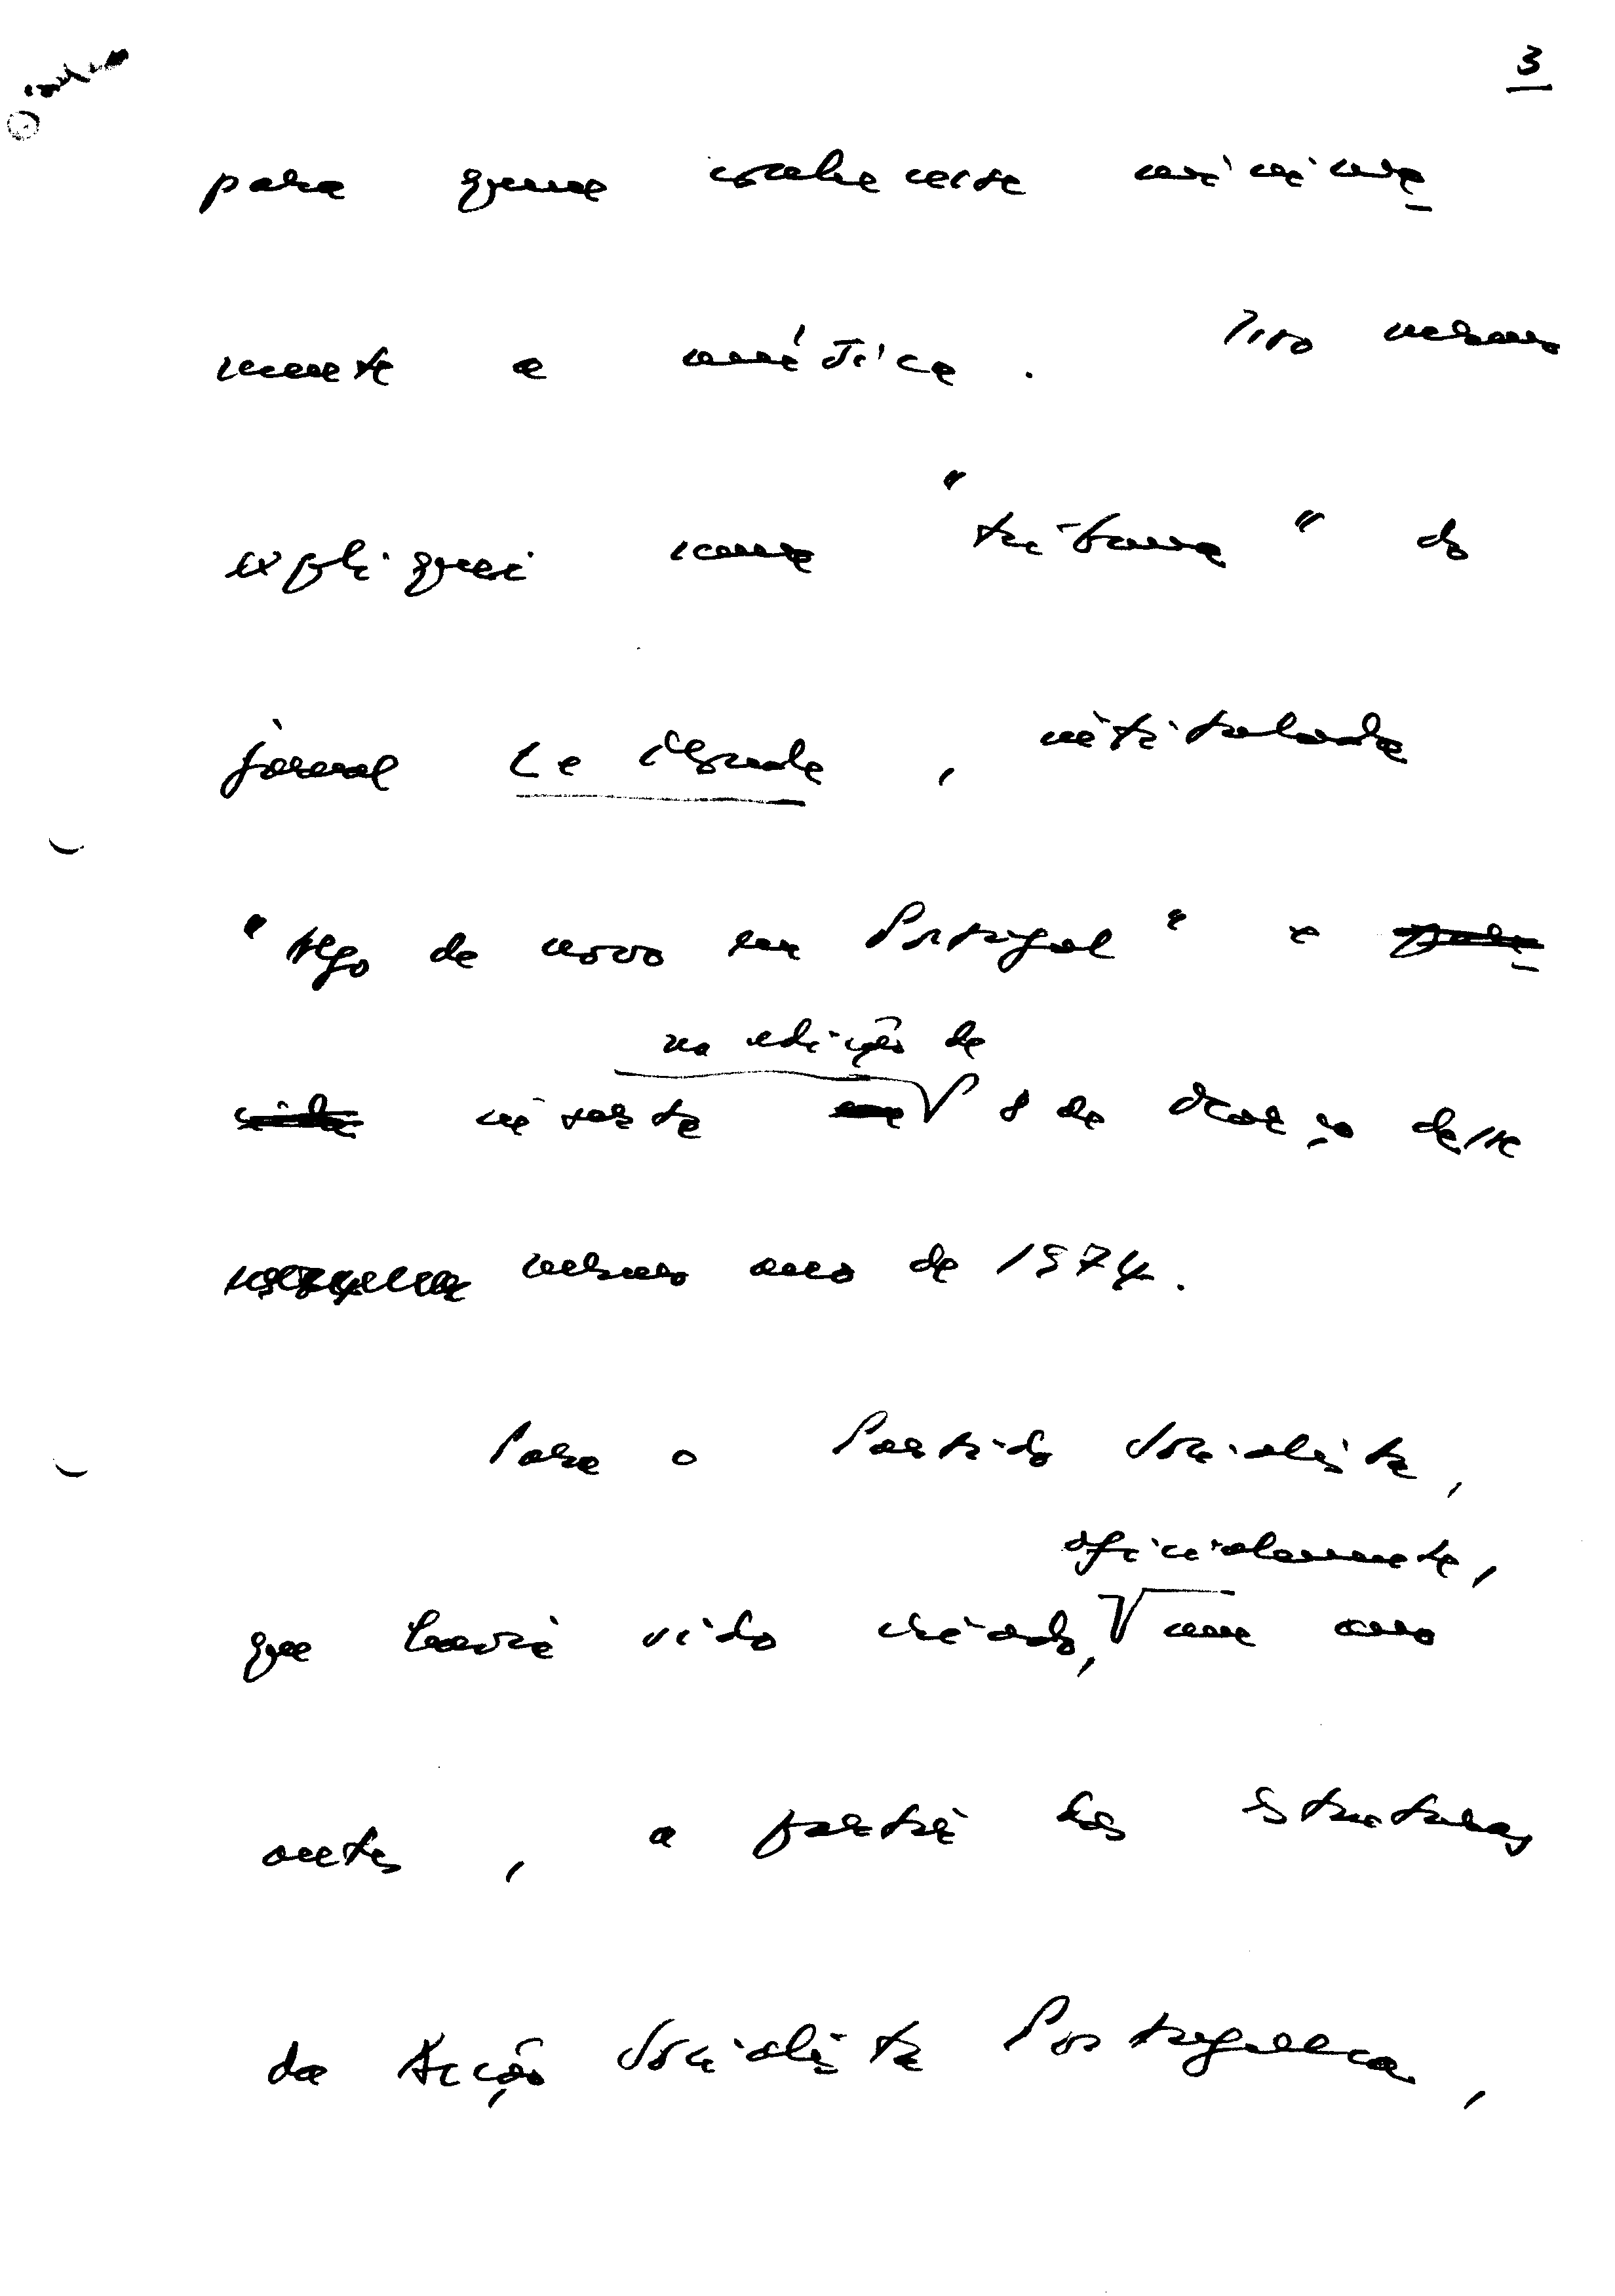 3
para quem conhecesse minima_
mente a mística. Isso mesmo
expliquei numa "tribuna" do
jornal Le Monde, intitulada
"Algo de novo em Portugal" e
na edição de
inserta 8 de Março desse
mesmo ano de 1974.
Para o Partido Socialista,
oficialmente,
que havia sido criado, um ano
antes, a partir das estruturas
da Acção Socialista Portuguesa,